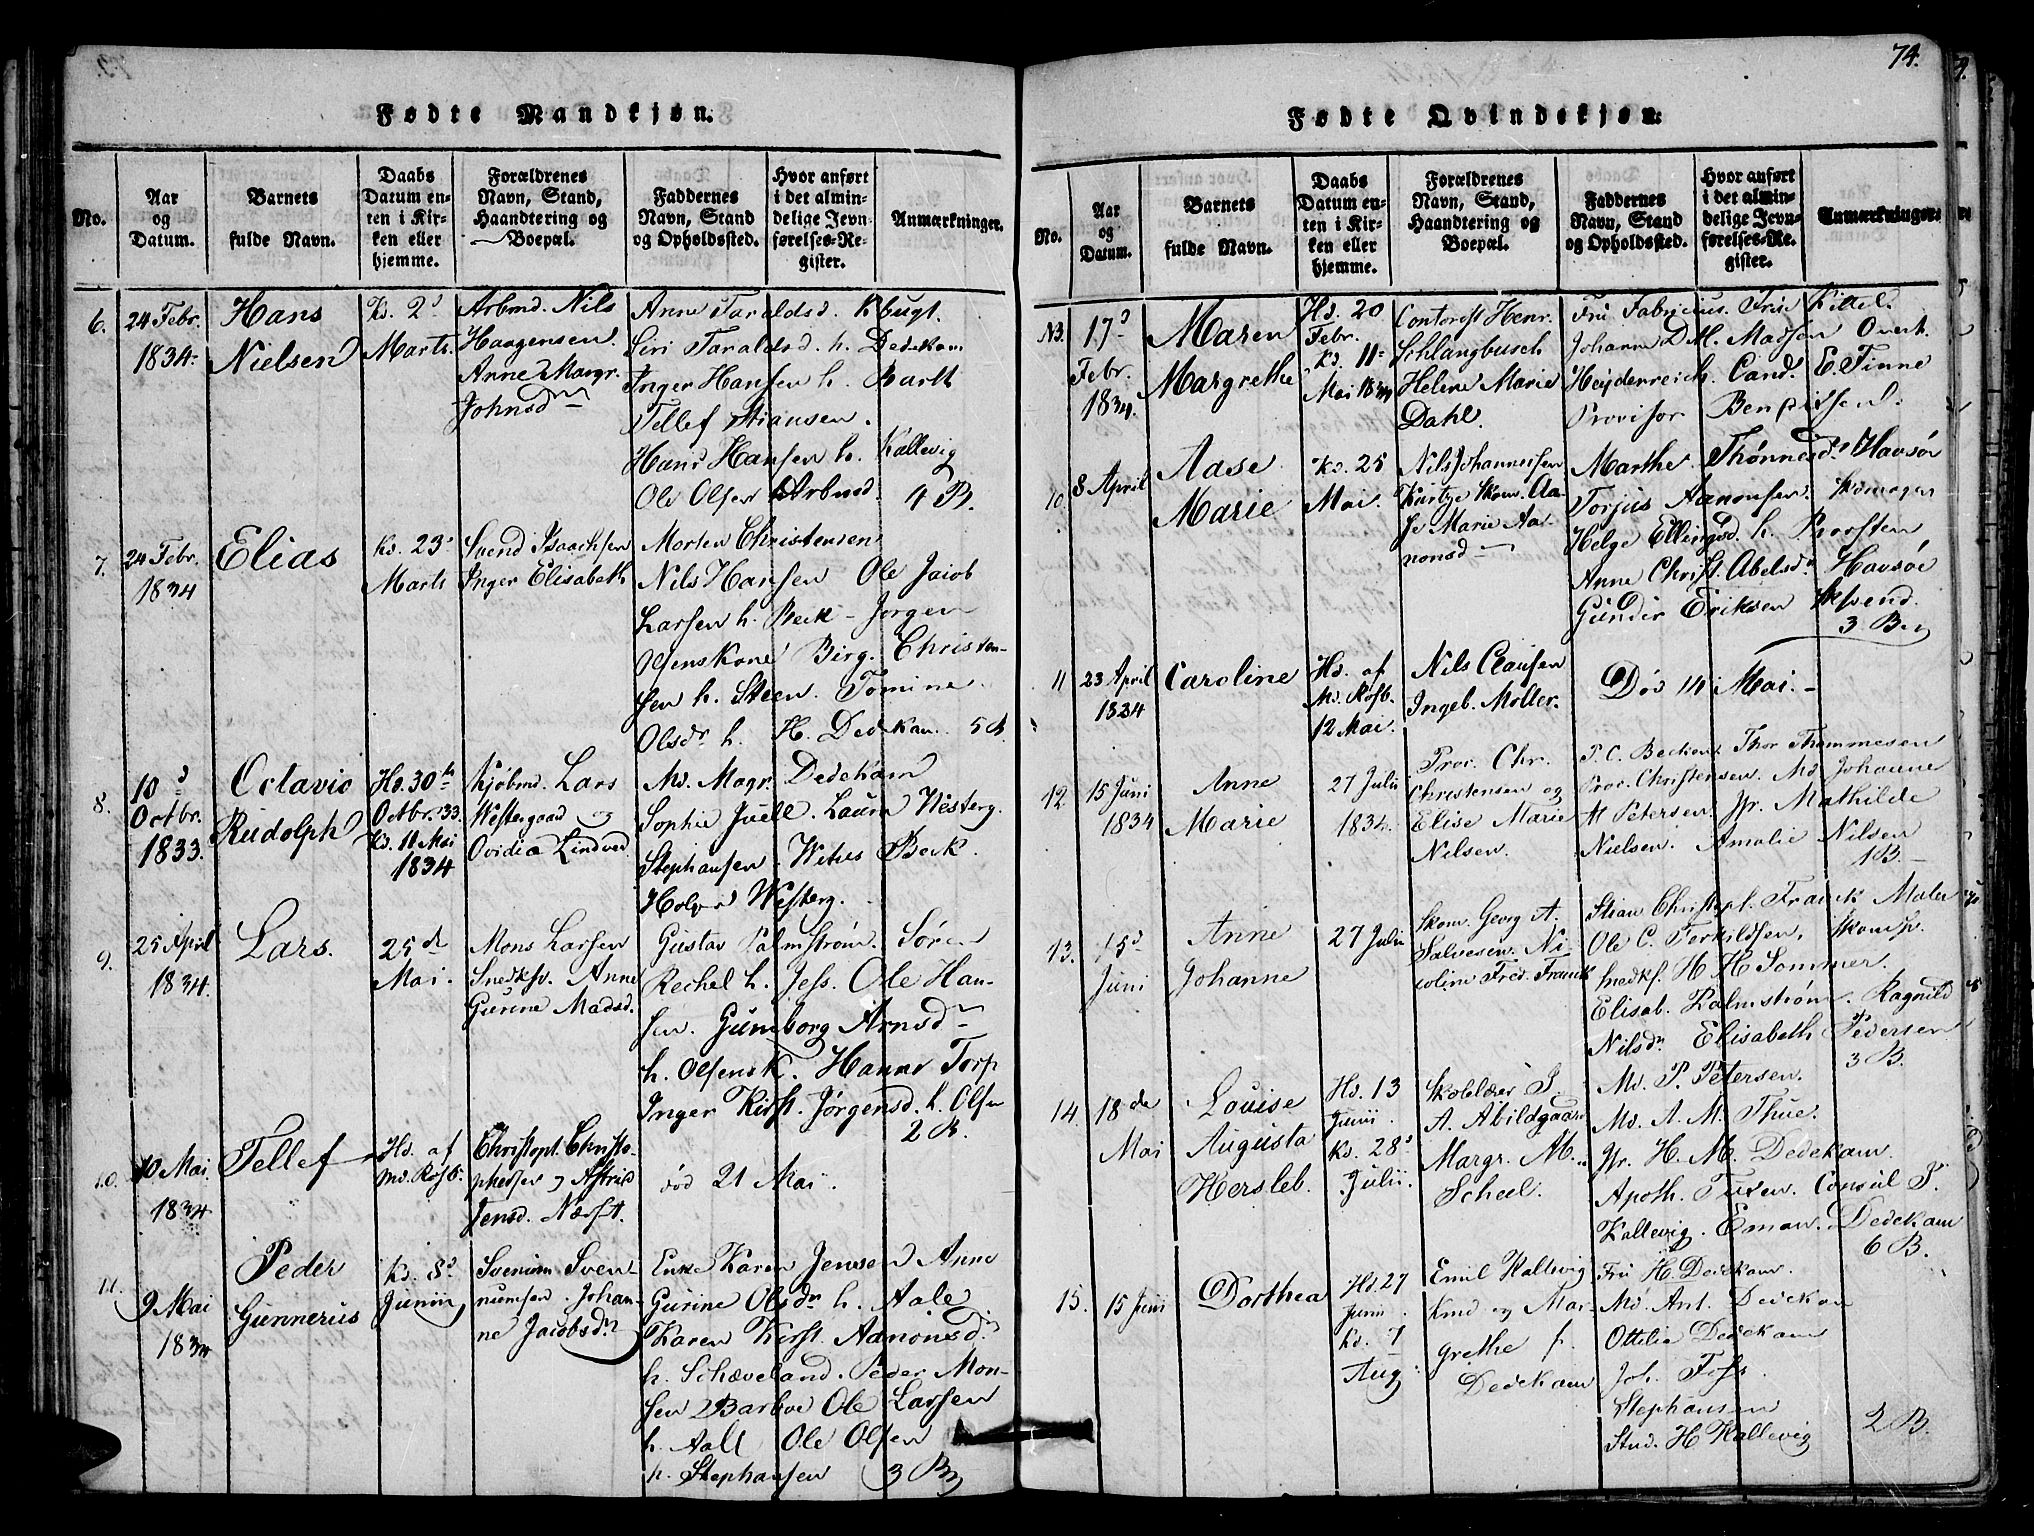 74.
Fødte Mandkjøn.
No.
Aar og Datum.
Barnets fulde Navn.
Daabs Datum enten i Kirken eller hjemme.
Forældrenes Navn, Stand, Haandtering og Boepæl.
Faddernes Navn, Stand og Opholdssted.
Hvor anført i det almindelige Jevnførelses-Register.
Anmærkninger.
6.
24 Febr.
1834.
Hans
Nielsen
Kd. 2d
Marts.
Arbmd. Nils
Haagensen
Anne Margr.
Johnsd
Anne Taraldsd. Kbugt.
Siri Taraldsd. h. Dedekam
Inger Hansen h. Barth
Tellef Stiansen.
Hans Hansen h. Kallevig
Ole Olsen Arbmd. 4 B.
7.
24 Febr.
1834
Elias
Kd. 23d
Marts
Svend Isaachsen
Inger Elisabeth
Morten Christensen
Nils Hansen Ole Jacob
Larsen h. Beck - Jørgen
Olsens Kone Birg. Christen-
sen h. Steen. Tomine
Olsdr h. H. Dedekam. 5 B.
8.
10d
Octbr.
1833.
Octavio
Rudolph
Hd. 30te
Octbr. 33.
Kd. 11 Mai
1834
Kjöbmd. Lars
Westergaad og
Ovidia Lindved
Md. Magr. Dedekam
Sophie Juell. Laura Westerg.
Stephansen. Beck.
Holger Westerg.
9.
25 April
1834.
Lars.
25de
Mai.
Mons Larsen
Snedksv. Anne
Gurine Madsd.
Gustav Palmstrøm. Søren
Rechel h. Jess. Ole Han-
sen. Gunborg Arnsd
h. Olsensk. Hanne Torp
Inger Kirst. Jørgensd. h. Olsen
2 B.
10.
10 Mai
1834
Tellef
Hd. af
Md. Rosb.
Christoph. Christo-
phersen og Astrid
Jensd. Nærst.
død 21 Mai.
11.
9 Mai
1834
Peder
Gunnerius
Kd. 8d
Junii
Svenum Sven-
numsen. Johan-
ne Jacobsd
Enke Karen Jensen Anne
Gurine Olsdr h. Aale
Karen Kirst. Aanonsd.
h. Schæveland. Peder Mon-
sen Barboe Ole Larsen
h. Aall Ole Olsen
h. Stephansen 3 B
Fødte Qvindekjøn.
No.
Aar og Datum.
Barnets fulde Navn.
Daabs Datum enten i Kirken eller hjemme.
Forældrenes Navn, Stand, Haandtering og Boepæl.
Faddernes Navn, Stand og Opholdssted.
Hvor anført i det almindelige Jevnførelses-Register.
Anmærkninger.
17d
Febr.
1834.
Maren
Margrethe
Hd. 20
Febr.
Kd. 11
Mai 1834
Contorist Henr.
Schlangbusch
Helene Marie
Dahl.
Fru Fabricius. Kittel.
Johanne D. M. Madsen Overt.
Heidenreich. Cand. E. Finne
Provisor
10
8 April
Aase
Marie
Kd. 25
Mai.
Nils Johannesen
Skom. Aa-
se Marie Aa-
nonsd
Marthe Thønnesd. Havsøe
Torjus Aanonsen. Skomager
Helge Ellingsd. h. Provsten
Anne Christ. Abelsd Havsøe
Gunder Eriksen
3 B
11
23 April
1834
Caroline
Hd. af
Md. Rosb.
12 Mai.
Nils Clausen
Ingeb. Møller.
Død 14 Mai.
12
15 Juni
1834
Anne
Marie
27 Julii
1834.
Proc. Chr.
Christensen og
Elise Marie
Nilsen.
P. C. Becken. Thor Thommesen
Proc. Christensen. Md. Johanne
M Petersen. Jfr. Mathilde
Nielsen. Amalie Nilsen
1 B.
13.
15d
Juni
Anne
Johanne
27 Julii
Skom. Georg A.
Salvesen. Ni-
coline Fred. Franck
Stian Christoph. Franck Maler
Ole C. Terkildsen, Skomsv.
Snedks. H H Sommer.
Elisab. Palmstrøm. Ragnild
Nilsdr Elisabeth Pedersen
3 B.
14.
18de
Mai
Louise
Augusta
Hersleb.
Hd. 13
Junii
Kd. 28d
Julii.
Skolelærer S.
A. Abildgaard
Margr. M.
Scheel.
Md. P. Petersen.
Md. A. M. Thue.
Jfr. H. M. Dedekam.
Apoth. Tuxen. Consul S.
Kallevig. Eman. Dedekam
6 B.
15.
15 Juni
Dorthea
Hd. 27
Junii
Kd. 7
Aug
Emil Kallevig
Kmd og Mar-
grethe f.
Dedekam
Fru H. Dedekam.
Md. Ant. Dedekam
Ottilia Dedekam
Joh. Foss.
Stephansen
Stud. H Kallevig
2 B.